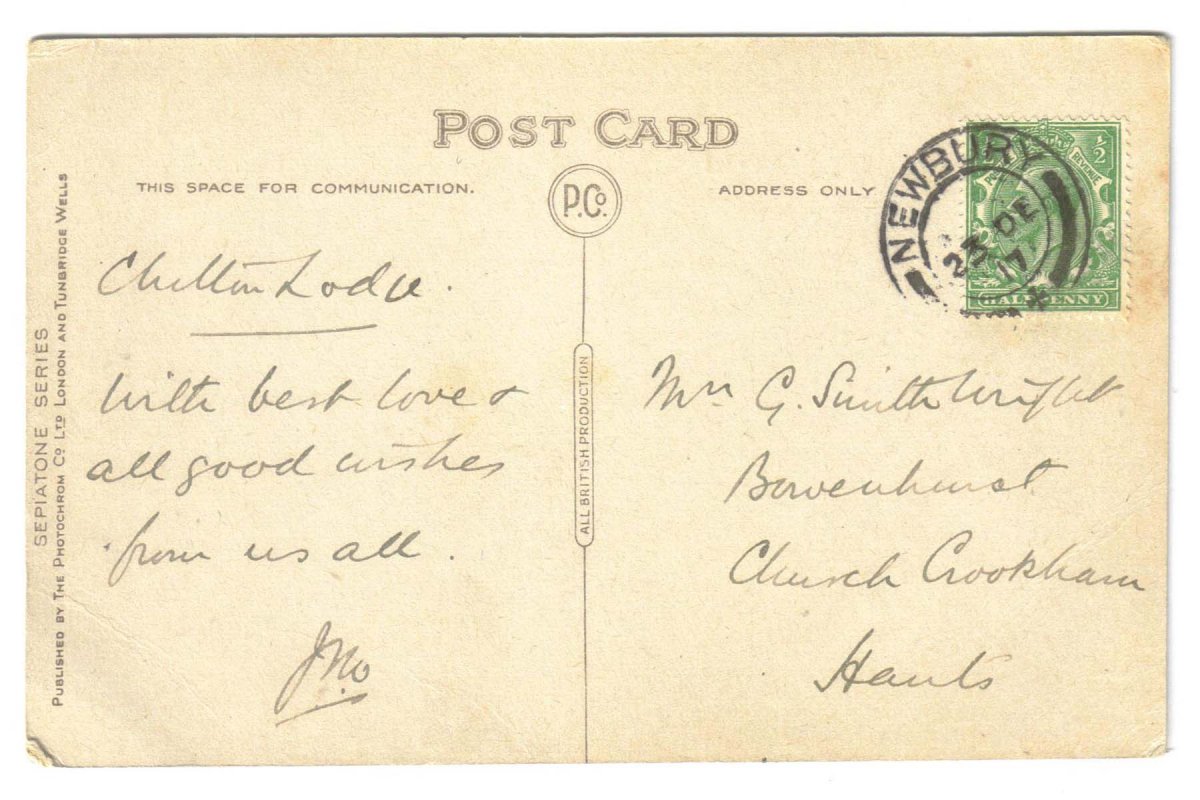 POST CARD
THIS SPACE FOR COMMUNICATION.
P.Co.
ADDRESS ONLY
NEWBURY
23 DE
17
*
½
REVENUE
HALFPENNY
SEPIATONE SERIES
PUBLISHED BY THE PHOTOCHROM CO LTD LONDON AND TUNBRIDGE WELLS
ALL BRITISH PRODUCTION
Chilton Lodge.
With best love &
all good wishes
from us all.
Jno
Mrs G. Smith Wright
Bowenhurst
Church Crookham
Hants